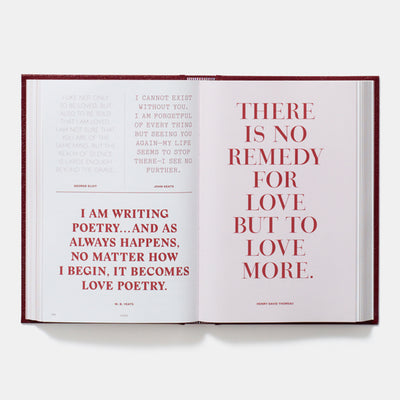 I LIKE NOT ONLY
TO BE LOVED, BUT
ALSO TO BE TOLD
THAT I AM LOVED.
I AM NOT SURE THAT
YOU ARE OF THE
SAME MIND. BUT THE
REALM OF SILENCE
IS LARGE ENOUGH
BEYOND THE GRAVE.
GEORGE ELIOT
I CANNOT EXIST
WITHOUT YOU.
I AM FORGETFUL
OF EVERY THING
BUT SEEING YOU
AGAIN—MY LIFE
SEEMS TO STOP
THERE—I SEE NO
FURTHER.
JOHN KEATS
I AM WRITING
POETRY...AND AS
ALWAYS HAPPENS,
NO MATTER HOW
I BEGIN, IT BECOMES
LOVE POETRY.
W. B. YEATS
THERE
IS NO
REMEDY
FOR
LOVE
BUT TO
LOVE
MORE.
HENRY DAVID THOREAU